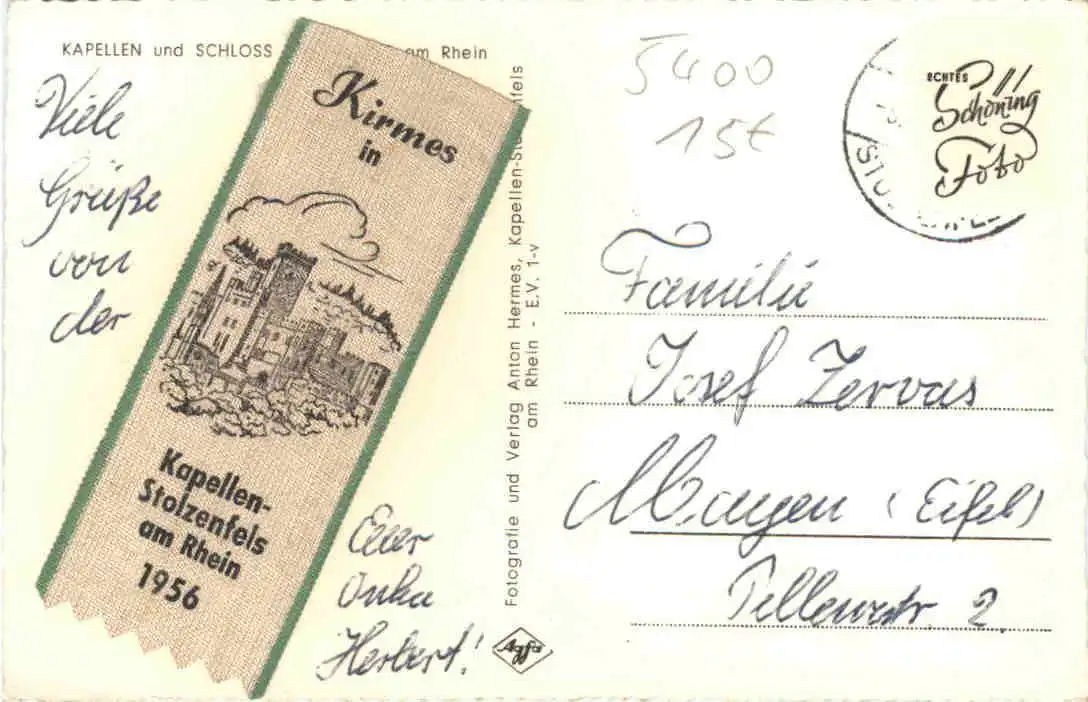 KAPELLEN und SCHLOSS am Rhein
Viele
Grüße
von
der
Kirmes
in
Kapellen-
Stolzenfels
am Rhein
1956
Euer
Onkel
Herbert!
Fotografie und Verlag Anton Hermes, Kapellen-Stolzenfels
am Rhein - E.V. 1-v
Agfa
5400
15€
ECHTES
Schöning
Foto
Familie
Josef Zervas
Mayen (Eifel)
2.